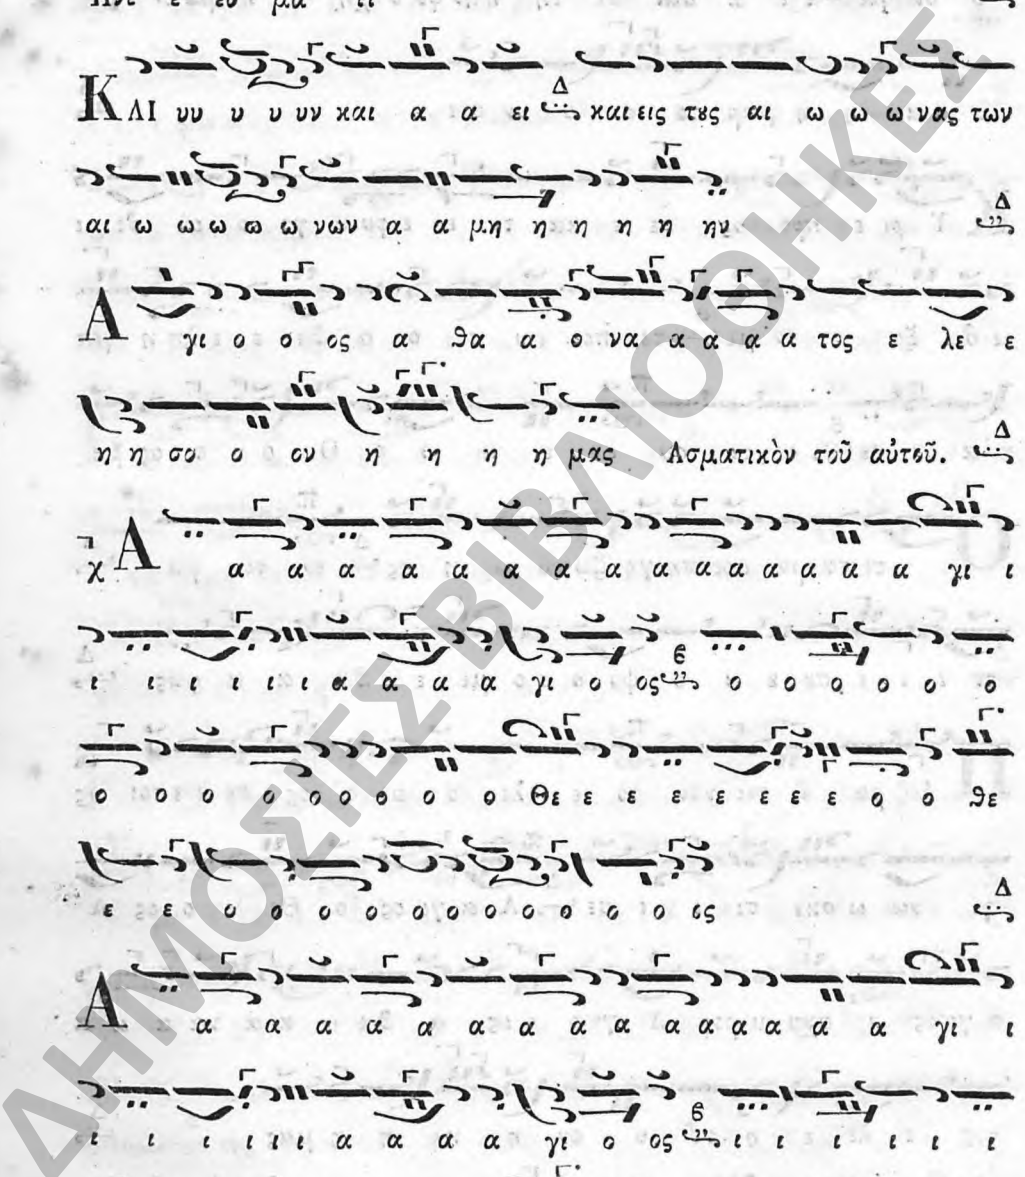 ΚΛΙ υυ υ υ υν και α α ει Δ και εις τȣς αι ω ω ω νας των
αι ω ω ω ω ω νων α α μη η η η η ην Δ
Α γι ο ο ος α θα α ο να α α α α τος ε λε ε
η η σο ο ον η η η η μας Ασματικὸν τοῦ αὐτοῦ. Δ
Α α α α α α α α α α α α α α α α γι ι
ι ι ι ι ι ι α α α α γι ο ος ο ο ο ο ο ο
ο ο ο ο ο ο ο ο ο ο Θε ε ε ε ε ε ε ε ο ο θε
ε ε ο ο ο ο ο ο ο ο ο ο ο ος Δ
Α α α α α α α α α α α α α α α γι ι
ι ι ι ι ι ι α α α α γι ο ος ι ι ι ι ι ι
ΔΗΜΟΣΙΕΣ ΒΙΒΛΙΟΘΗΚΕΣ